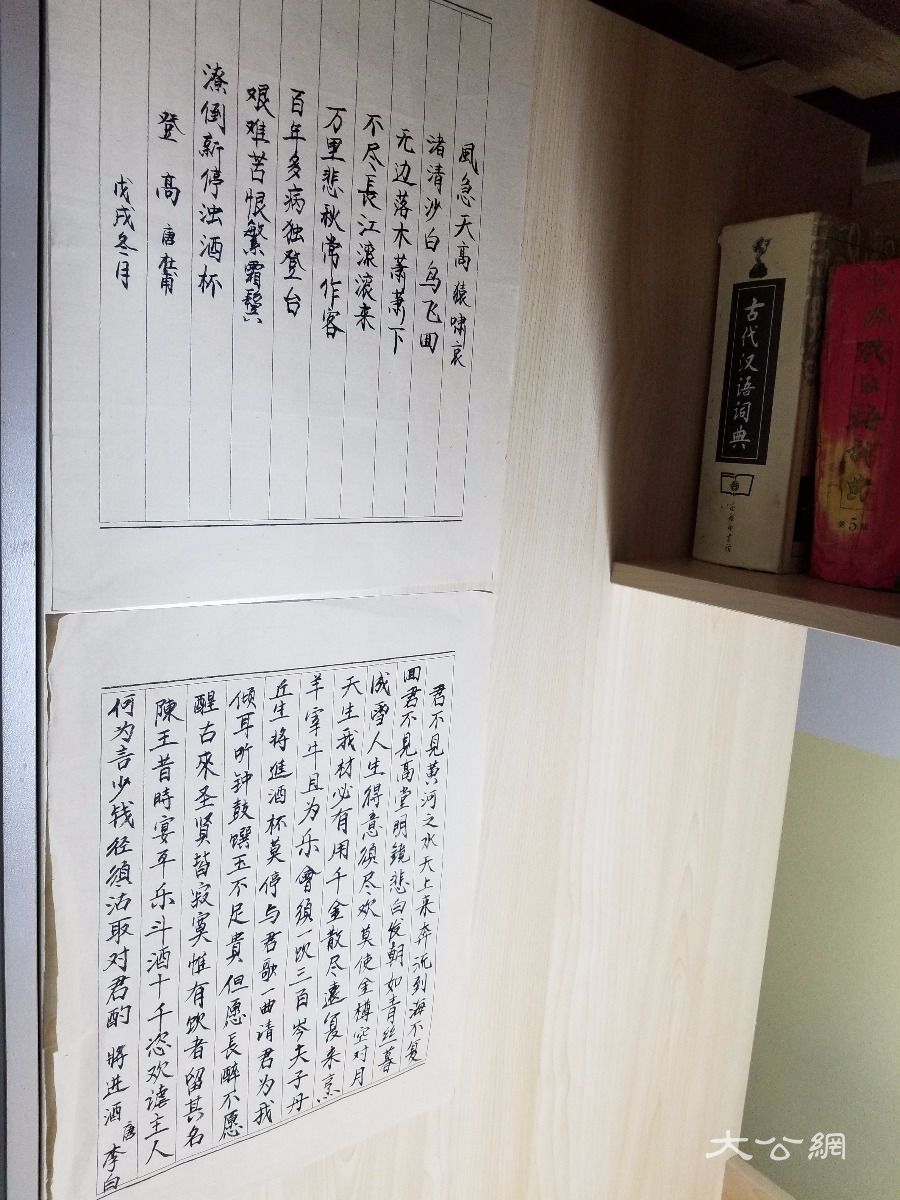 風急天高猿啸哀
渚清沙白鸟飞回
无边落木萧萧下
不尽長江滚滚来
万里悲秋常作客
百年多病独登台
艰难苦恨繁霜鬓
潦倒新停浊酒杯
登高 唐 杜甫
戊戌冬月
君不見黄河之水天上来奔流到海不复
回君不見高堂明鏡悲白发朝如青丝暮
成雪人生得意须尽欢莫使金樽空对月
天生我材必有用千金散尽還复来烹
羊宰牛且为乐會須一饮三百岑夫子丹
丘生将進酒杯莫停与君歌一曲请君为我
倾耳听钟鼓馔玉不足貴但愿長醉不愿
醒古來圣贤皆寂寞惟有饮者留其名
陳王昔時宴平乐斗酒十千恣欢谑主人
何为言少钱径須沽取对君酌 將进酒 唐 李白
古代汉语词典
商务印书馆
第5版
大公網